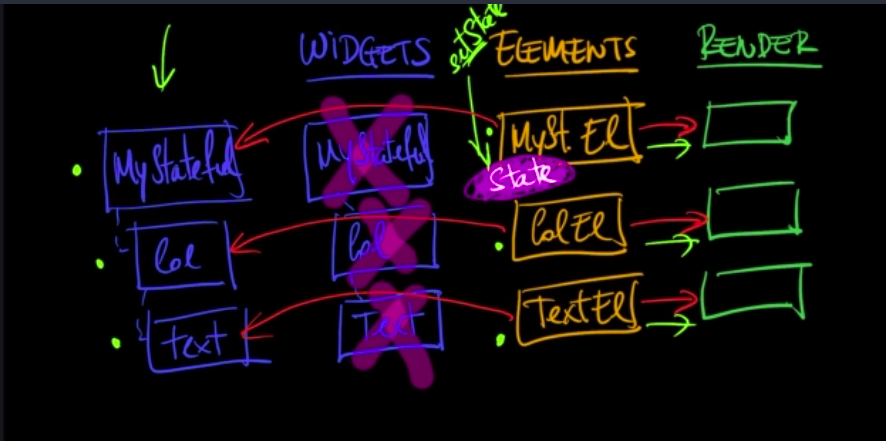 WIDGETS
setState
ELEMENTS
RENDER
MyStateful
MyStateful
MySt. El
State
Col
Col
ColEl
Text
Text
TextEl